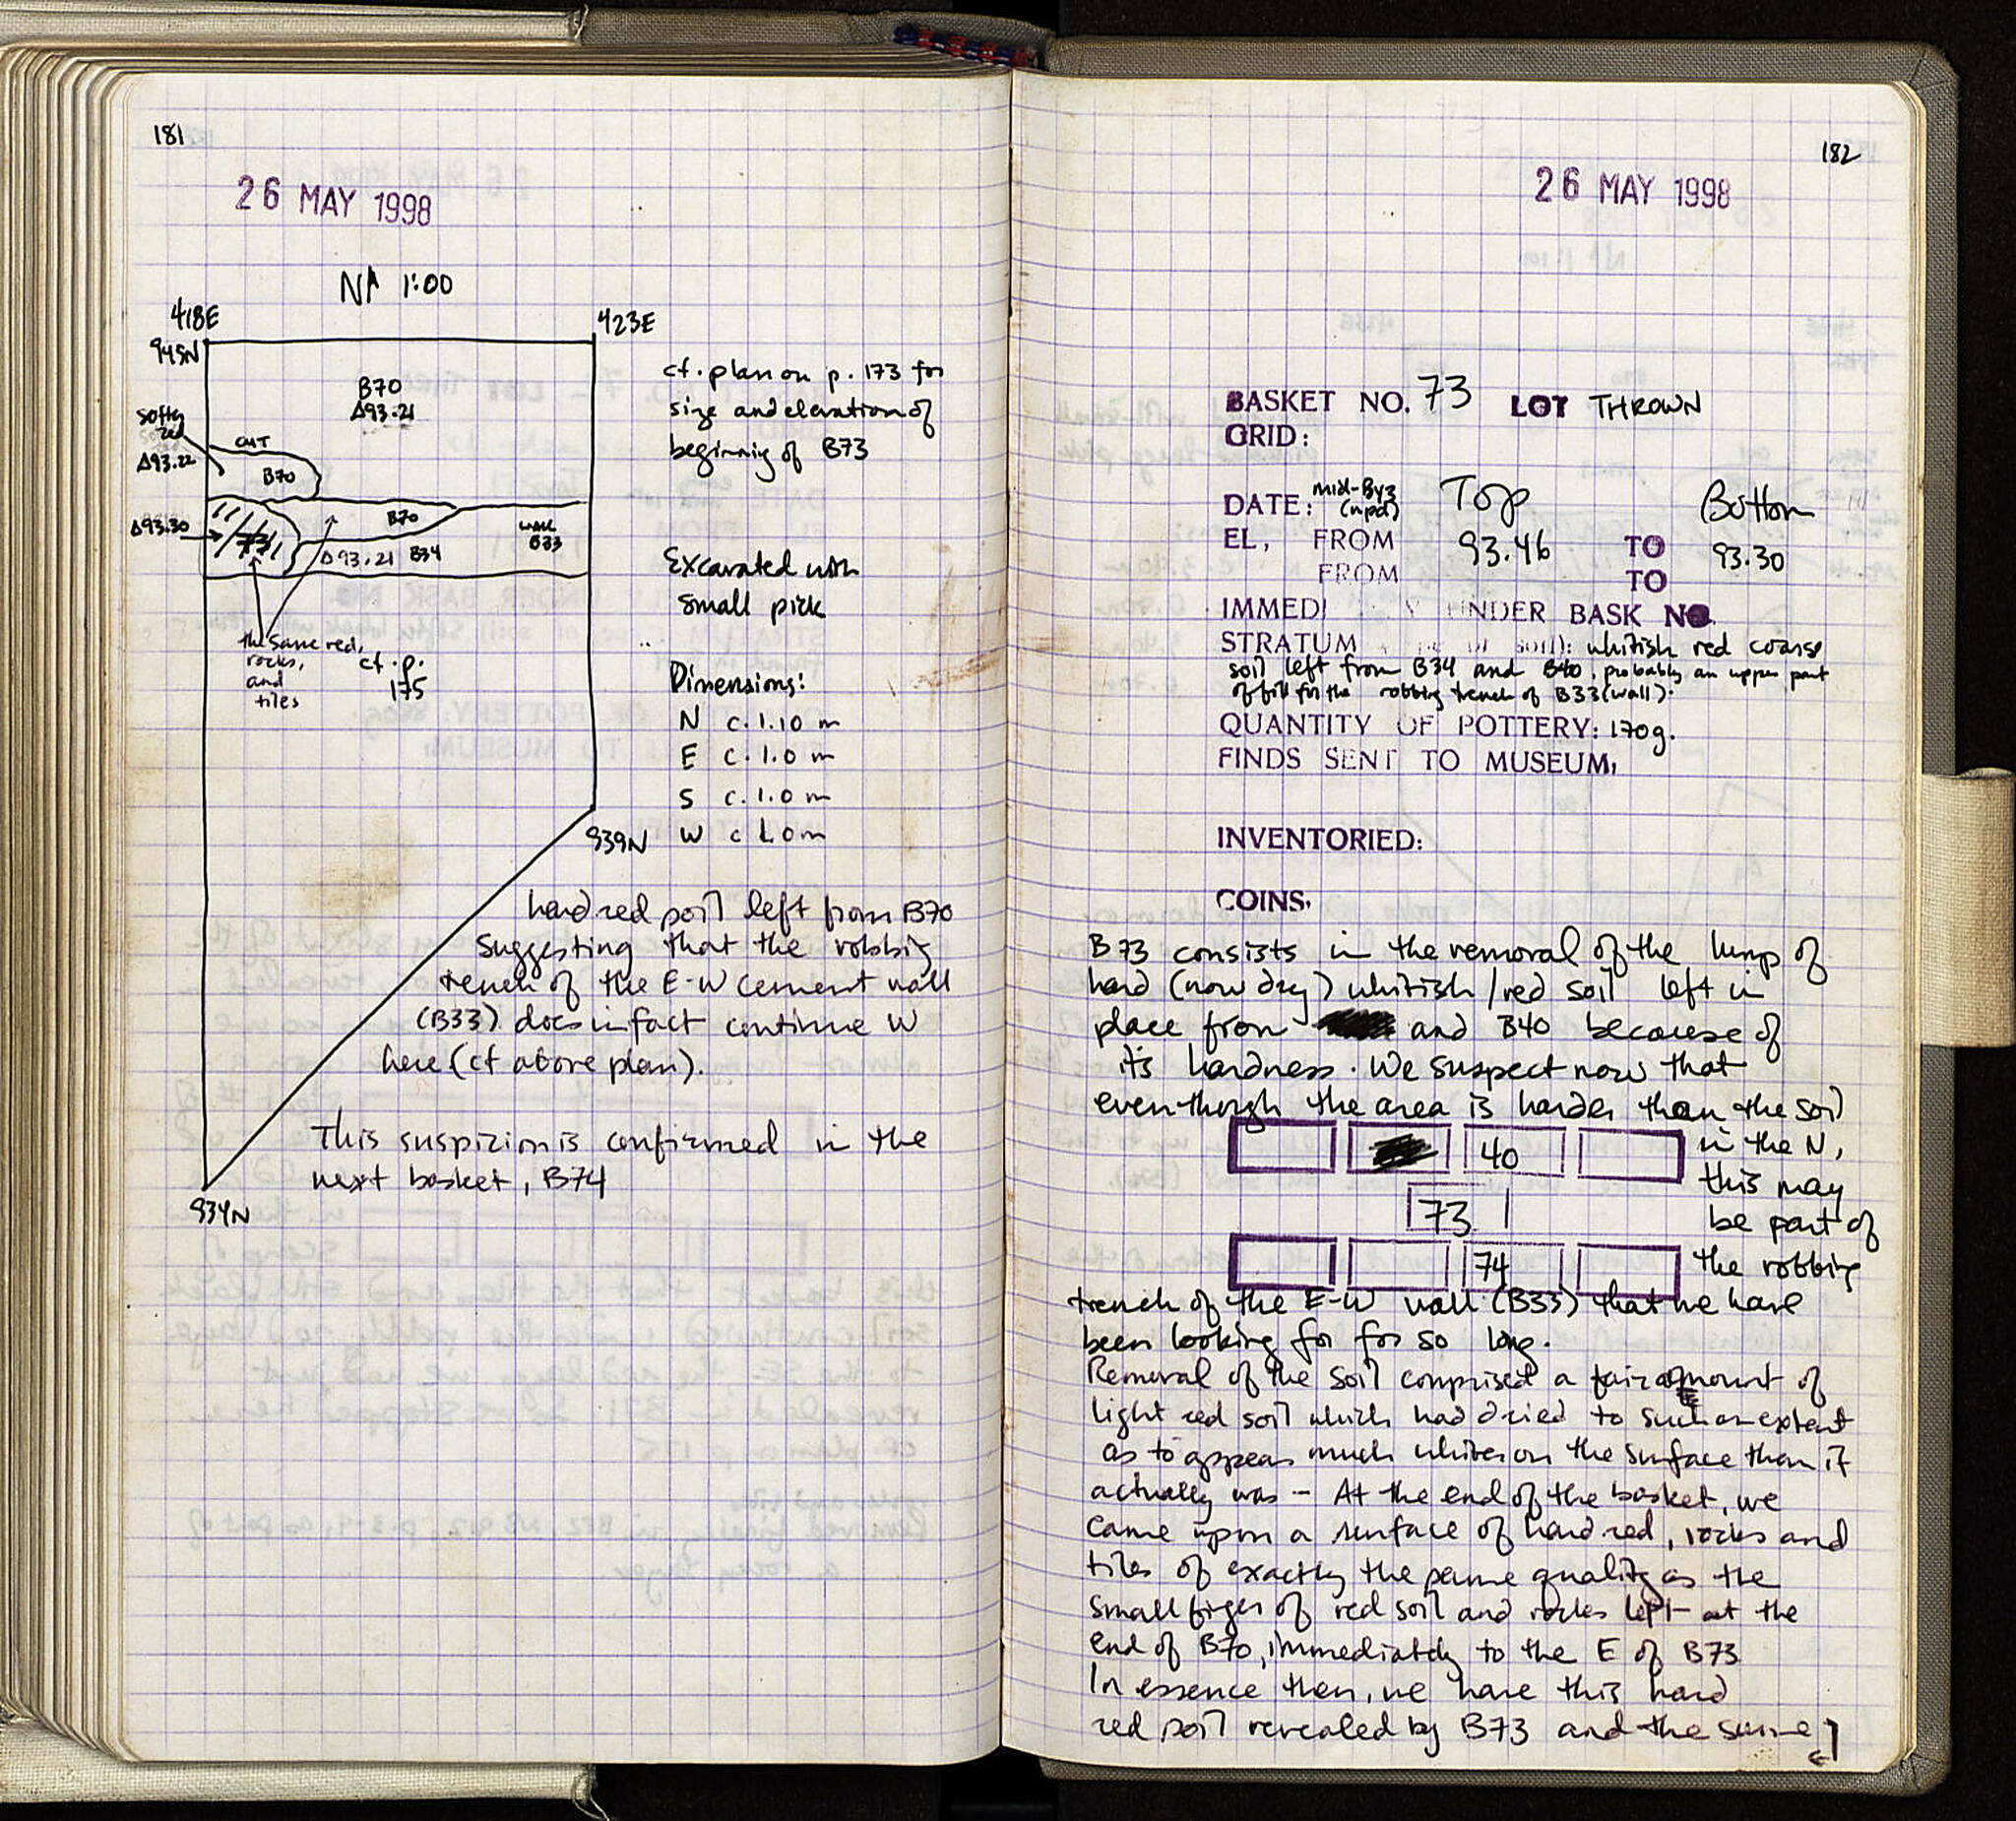 181
26 MAY 1998
N 1:00
418E
423E
945N
B70
Δ93.21
softy
red
Δ93.22
CUT
B70
Δ93.30
B70
WALL
B33
73
Δ93.21 B34
the same red,
rocks,
and
tiles
cf. p.
175
939N
934N
cf. plan on p. 173 for
size and elevation of
beginnig of B73
Excavated with
small pick
Dimensions:
N c. 1.10 m
E c. 1.0 m
S c. 1.0 m
W c 1.0 m
hard red soil left from B70
suggesting that the robbig
trench of the E-W cement wall
(B33) does in fact continue W
here (cf above plan).
This suspizion is confirmed in the
next basket, B74
182
26 MAY 1998
BASKET NO. 73 LOT THROWN
GRID:
DATE: Top Bottom
EL, FROM 93.46 TO 93.30
FROM TO
IMMEDI Y UNDER BASK NO.
STRATUM soil): whitish red coarse
soil left from B34 and B40, probably an upper part
of fill for the robbig trench of B33 (wall).
QUANTITY OF POTTERY: 170g.
FINDS SENT TO MUSEUM,
INVENTORIED:
COINS,
B73 consists in the removal of the lump of
hard (now dry) whitish/red soil left in
place from and B40 because of
it's hardness. We suspect now that
even though the area is harder than the soil
in the N,
this may
be part of
the robbig
40
73
74
trench of the E-W wall (B33) that we have
been looking for for so long.
Removal of the soil comprised a fair amount of
light red soil which had dried to such an extent
as to appear much whiter on the surface than it
actually was - At the end of the basket, we
came upon a surface of hard red, rocks and
tiles of exactly the same quality as the
small finger of red soil and rocks left at the
end of B70, immediately to the E of B73
In essence then, we have this hard
red soil revealed by B73 and the same